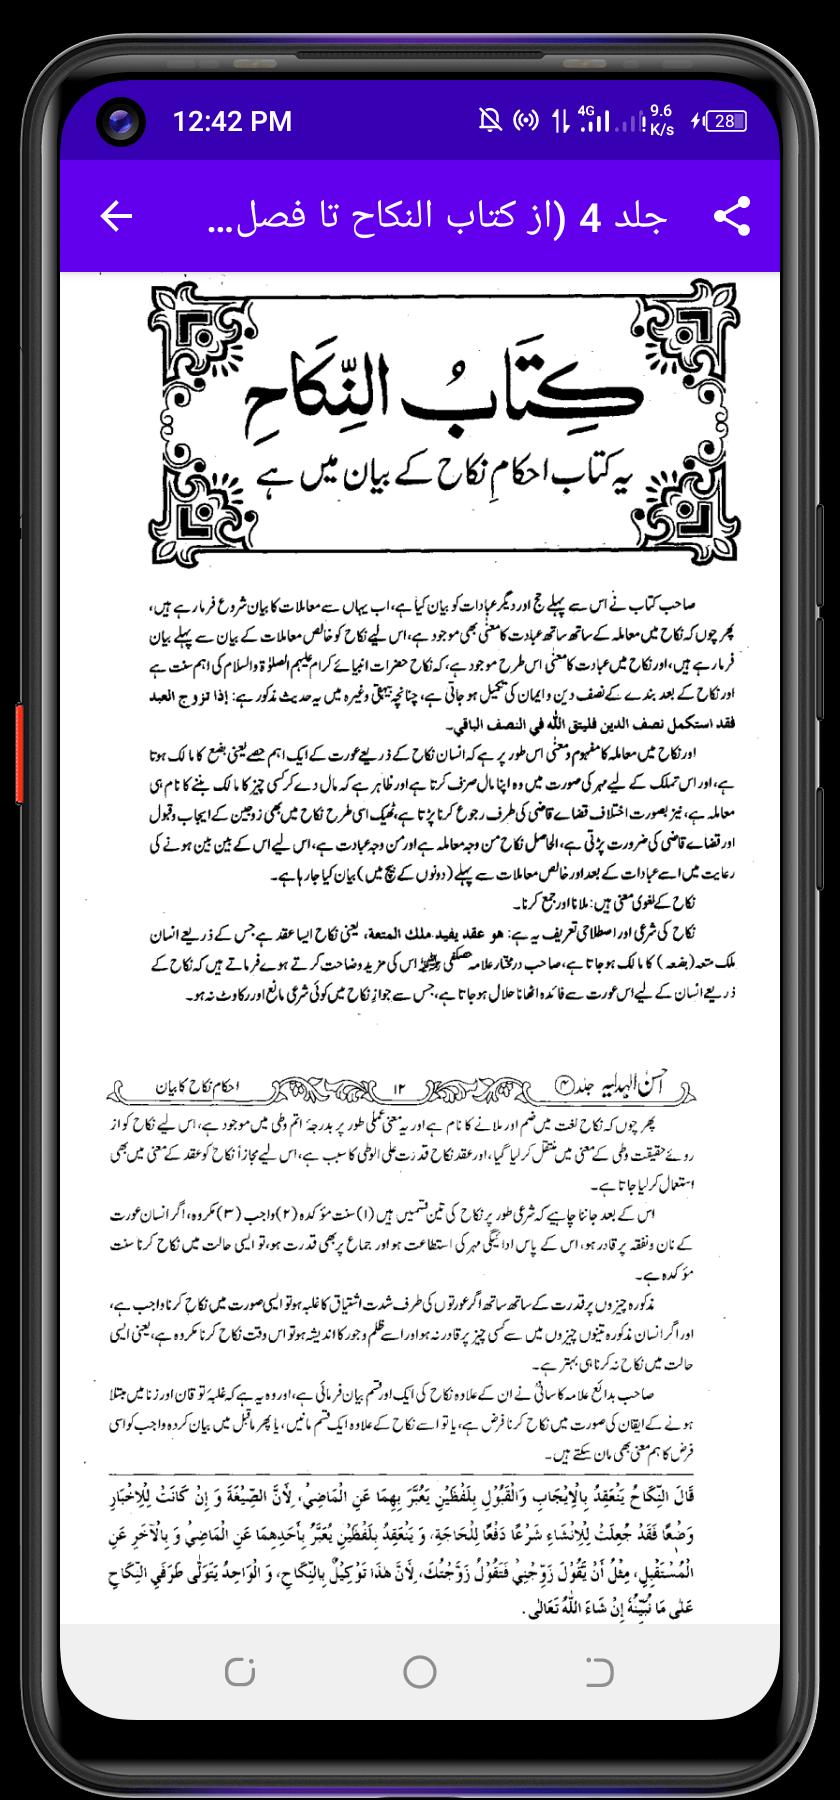 12:42 PM
4G
9.6
K/s
28
جلد 4 (از کتاب النکاح تا فصل...
کِتَابُ النِّکَاحِ
یہ کتاب احکامِ نکاح کے بیان میں ہے
صاحب کتاب نے اس سے پہلے حج اور دیگر عبادات کو بیان کیا ہے، اب یہاں سے معاملات کا بیان شروع فرما رہے ہیں،
پھر چوں کہ نکاح میں معاملہ کے ساتھ ساتھ عبادت کا معنٰی بھی موجود ہے، اس لیے نکاح کو خالص معاملات کے بیان سے پہلے بیان
فرما رہے ہیں، اور نکاح میں عبادت کا معنٰی اس طرح موجود ہے، کہ نکاح حضرات انبیائے کرام علیہم الصلوٰۃ والسلام کی اہم سنت ہے
اور نکاح کے بعد بندے کے نصف دین و ایمان کی تکمیل ہو جاتی ہے، چنانچہ بیہقی وغیرہ میں یہ حدیث مذکور ہے: إذا تزوج العبد
فقد استکمل نصف الدین فلیتق اللہ في النصف الباقي۔
اور نکاح میں معاملہ کا مفہوم و معنٰی اس طور پر ہے کہ انسان نکاح کے ذریعے عورت کے ایک اہم حصے یعنی بضع کا مالک ہوتا
ہے، اور اس تملک کے لیے مہر کی صورت میں وہ اپنا مال صرف کرتا ہے اور ظاہر ہے کہ مال دے کر کسی چیز کا مالک بننے کا نام ہی
معاملہ ہے، نیز بصورت اختلاف قضاے قاضی کی طرف رجوع کرنا پڑتا ہے، ٹھیک اسی طرح نکاح میں بھی زوجین کے ایجاب و قبول
اور قضاے قاضی کی ضرورت پڑتی ہے، الحاصل نکاح من وجہ معاملہ ہے اور من وجہ عبادت ہے، اس لیے اس کے بین بین ہونے کی
رعایت میں اسے عبادات کے بعد اور خالص معاملات سے پہلے (دونوں کے بیچ میں) بیان کیا جا رہا ہے۔
نکاح کے لغوی معنی ہیں: ملانا اور جمع کرنا۔
نکاح کی شرعی اور اصطلاحی تعریف یہ ہے: ھو عقد یفید ملك المتعة، یعنی نکاح ایسا عقد ہے جس کے ذریعے انسان
ملک متعہ (بضعہ) کا مالک ہو جاتا ہے، صاحب درمختار علامہ حصکفی رحمۃ اللہ علیہ اس کی مزید وضاحت کرتے ہوے فرماتے ہیں کہ نکاح کے
ذریعے انسان کے لیے اس عورت سے فائدہ اٹھانا حلال ہو جاتا ہے، جس سے جوازِ نکاح میں کوئی شرعی مانع اور رکاوٹ نہ ہو۔
احسن الہدایہ جلد ۴
۱۲
احکام نکاح کا بیان
پھر چوں کہ نکاح لغت میں ضم اور ملانے کا نام ہے اور یہ معنی عملی طور پر بدرجۂ اتم وطی میں موجود ہے، اس لیے نکاح کو از
روئے حقیقت وطی کے معنی میں منتقل کر لیا گیا، اور عقد نکاح قدرت علی الوطی کا سبب ہے، اس لیے مجازاً نکاح کو عقد کے معنی میں بھی
استعمال کر لیا جاتا ہے۔
اس کے بعد جاننا چاہیے کہ شرعی طور پر نکاح کی تین قسمیں ہیں (۱) سنت مؤکدہ (۲) واجب (۳) مکروہ، اگر انسان عورت
کے نان و نفقہ پر قادر ہو، اس کے پاس ادائیگی مہر کی استطاعت ہو اور جماع پر بھی قدرت ہو، تو ایسی حالت میں نکاح کرنا سنت
مؤکدہ ہے۔
مذکورہ چیزوں پر قدرت کے ساتھ ساتھ اگر عورتوں کی طرف شدت اشتیاق کا غلبہ ہو تو ایسی صورت میں نکاح کرنا واجب ہے،
اور اگر انسان مذکورہ تینوں چیزوں میں سے کسی چیز پر قادر نہ ہو اور اسے ظلم و جور کا اندیشہ ہو تو اس وقت نکاح کرنا مکروہ ہے، یعنی ایسی
حالت میں نکاح نہ کرنا ہی بہتر ہے۔
صاحب بدائع علامہ کاسانیؒ نے ان کے علاوہ نکاح کی ایک اور قسم بیان فرمائی ہے، اور وہ یہ ہے کہ غلبۂ توقان اور زنا میں مبتلا
ہونے کے ایقان کی صورت میں نکاح کرنا فرض ہے، یا تو اسے نکاح کے علاوہ ایک قسم مانیں، یا پھر ماقبل میں بیان کردہ واجب کو اسی
فرض کا ہم معنی بھی مان سکتے ہیں۔
قَالَ النِّكَاحُ يَنْعَقِدُ بِالْإِيْجَابِ وَالْقَبُوْلِ بِلَفْظَيْنِ يُعَبَّرُ بِهِمَا عَنِ الْمَاضِيْ، لِأَنَّ الصِّيْغَةَ وَ إِنْ كَانَتْ لِلْإِخْبَارِ
وَضْعًا فَقَدْ جُعِلَتْ لِلْإِنْشَاءِ شَرْعًا دَفْعًا لِلْحَاجَةِ، وَ يَنْعَقِدُ بِلَفْظَيْنِ يُعَبَّرُ بِأَحَدِهِمَا عَنِ الْمَاضِيْ وَ بِالْآخَرِ عَنِ
الْمُسْتَقْبِلِ، مِثْلُ أَنْ يَّقُوْلَ زَوِّجْنِيْ فَيَقُوْلُ زَوَّجْتُكَ، لِأَنَّ هٰذَا تَوْكِيْلٌ بِالنِّكَاحِ، وَ الْوَاحِدُ يَتَوَلّٰى طَرَفَيِ النِّكَاحِ
عَلٰى مَا نُبَيِّنُهٗ إِنْ شَاءَ اللّٰهُ تَعَالٰى.